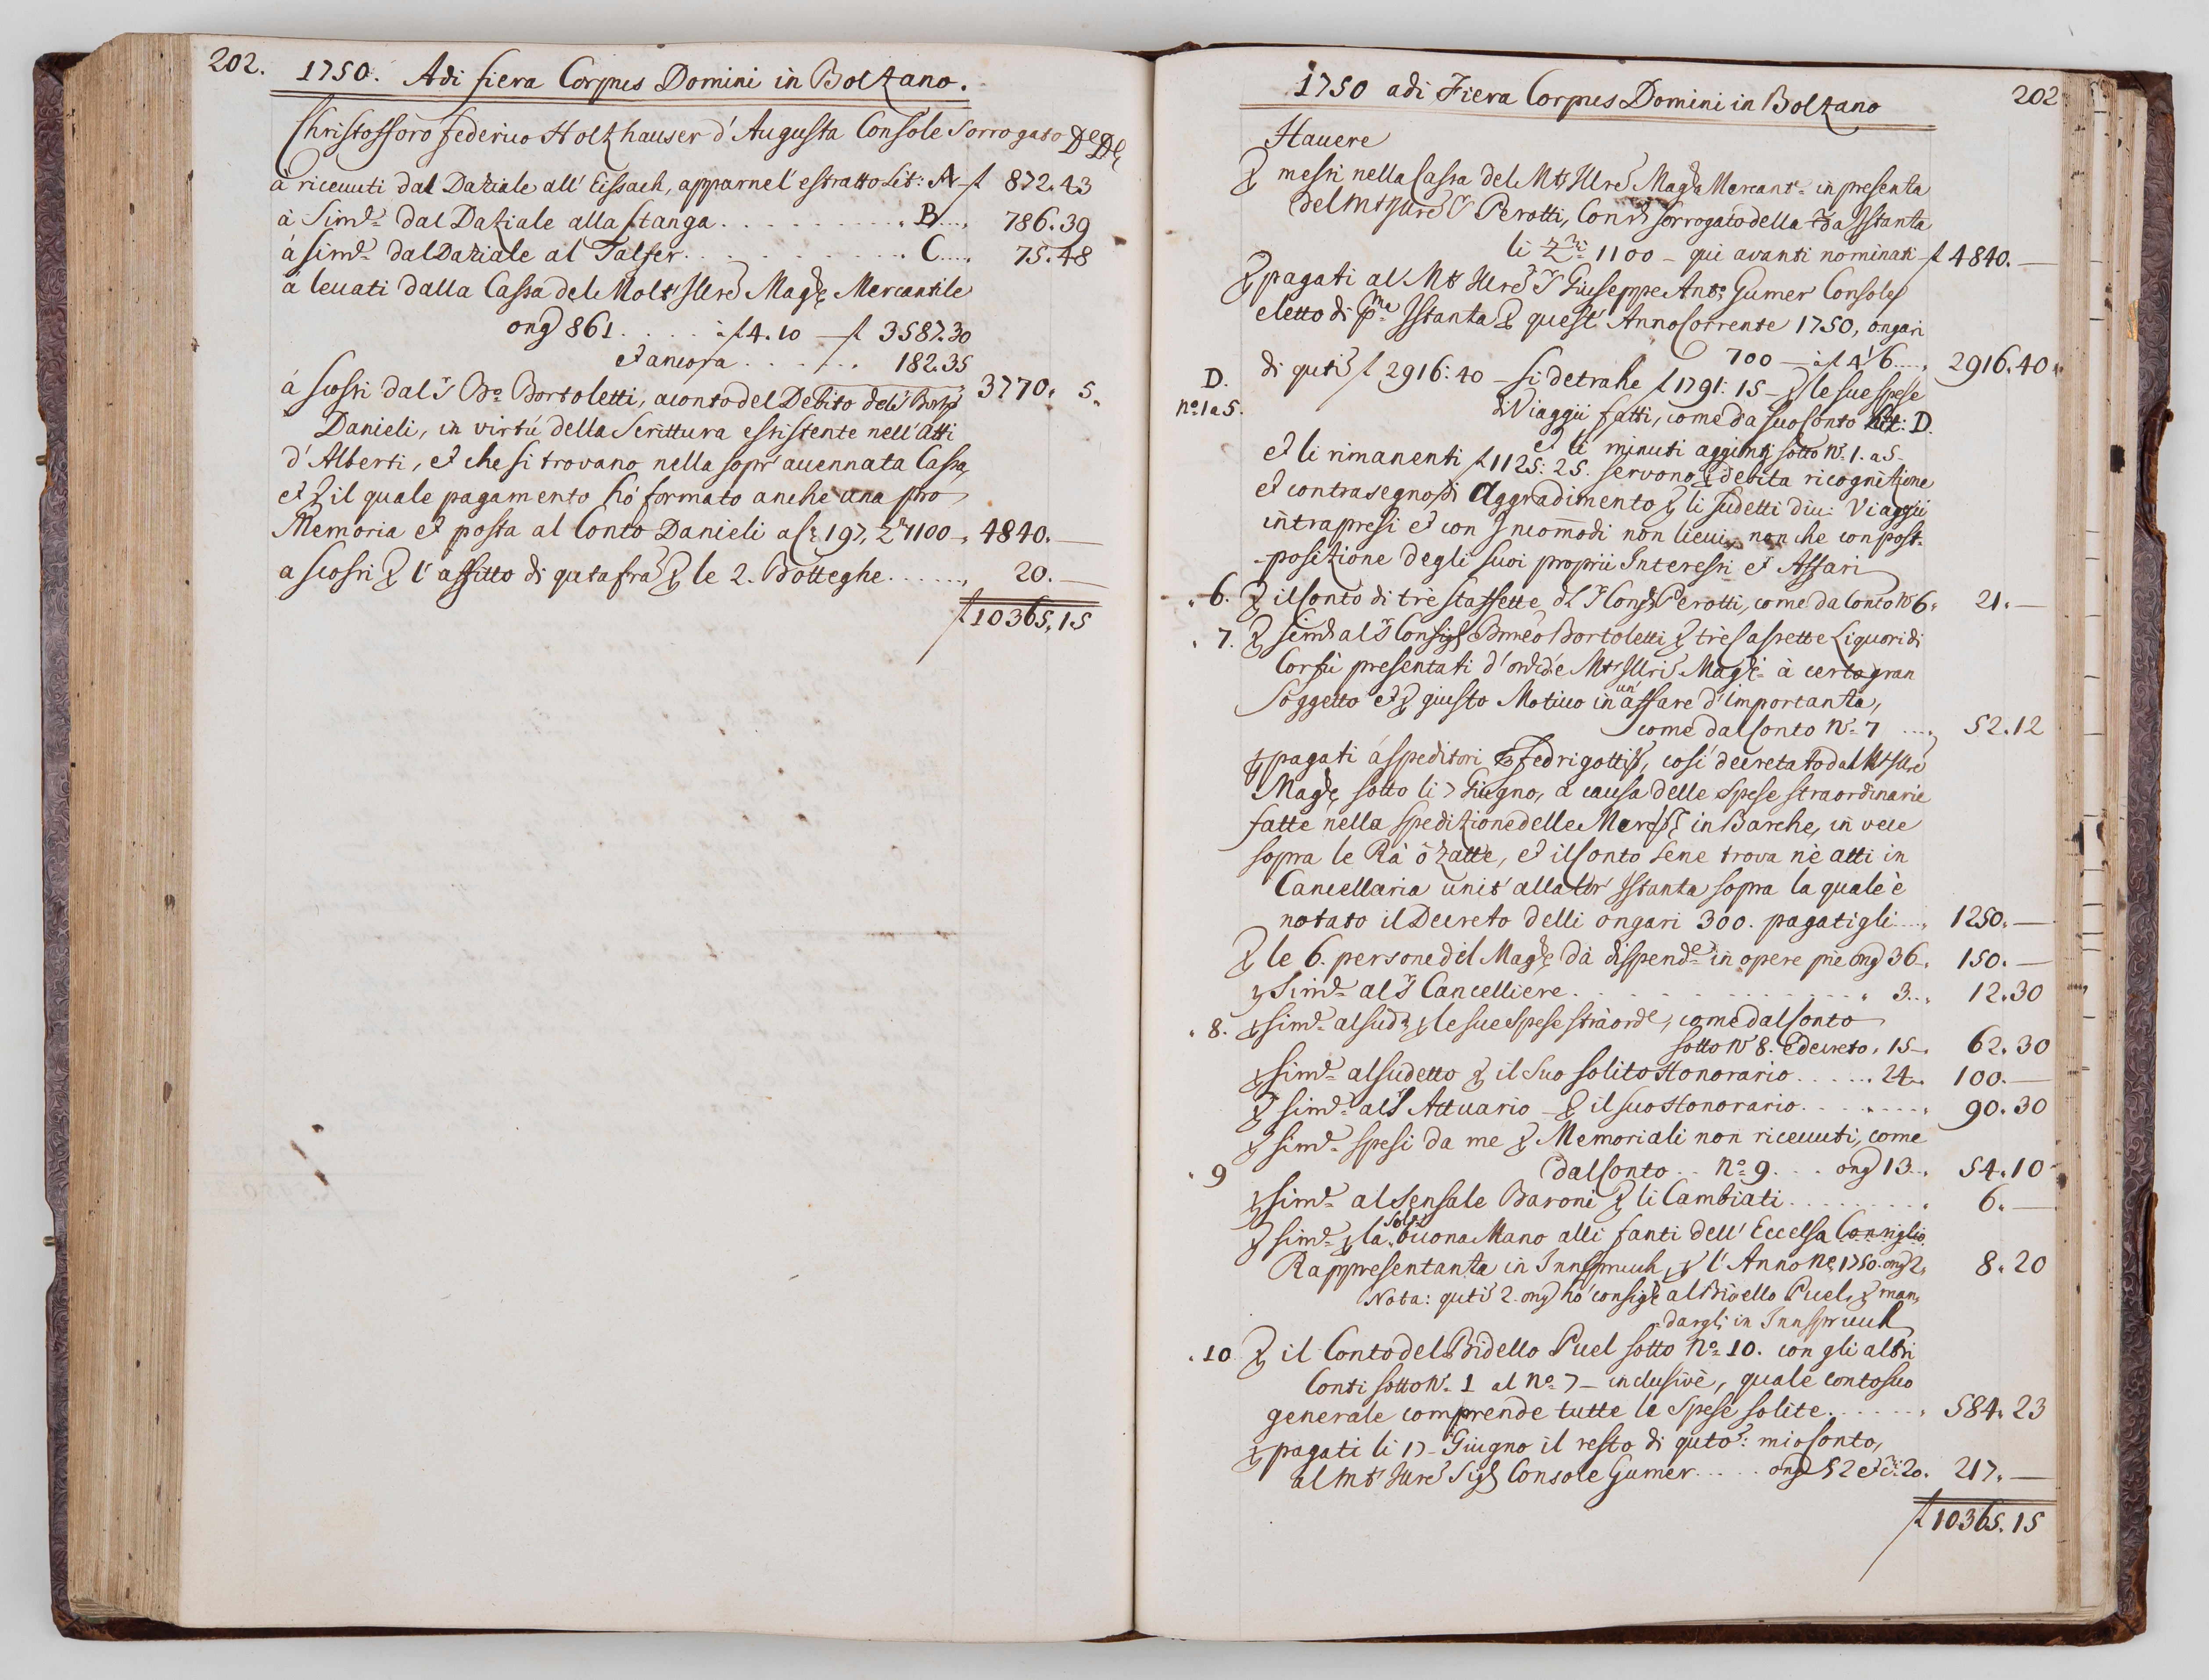 202.
1750. Adi fiera Corpus Domini in Bolzano.
Christofforo federico Holzhauser d'Augusta Console Sorrogato De De
à riceuuti dal Daziale all' Eissach, appar nel' estratto Lit: A f 872.43
à Simd dal Daziale alla Stanga . . . . . . B . . . 786.39
à simd dal Daziale al Talfer . . . . . . C . . . . 75.48
à leuati dalla Cassa del Molt' Illre Magle Mercantile
ong 861 . . . . à f 4.10 — f 3587.30
et ancora . . . . . . 182.35
3770. 5.
à scossi dal Sr Bo Bortoletti, aconto del Debito del Sr Barto
Danieli, in virtú della Scrittura essistente nell' Atti
d'Alberti, et che si trovano nella sopr' auennata Cassa,
et p il quale pagamento hó formato anche una pro
Memoria et posta al Conto Danieli a C: 197, Zni 1100 — 4840. —
a scossi p l'affitto di quta fra p le 2. Botteghe . . . . . , 20. —
f 10365.15
1750 adi Fiera Corpus Domini in Bolzano
202
Hauere
p messi nella Cassa del Mto Illre Magle Mercante in presenza
del Mto Illre Sr Perotti, Cons Sorrogato della 2da Istanza
li Zni 1100 — qui avanti nominati f 4840. —
p pagati al Mto Illre Sr Giuseppe Anto Gumer Console
eletto di pma Istanza p quest' Anno Corrente 1750, ongari
700 — à f 4 1/6 . . . , 2916.40
D. di quti f 2916:40 — si detrahe f 1791:15 — p le sue spese
No 1 a 5. di Viaggii fatti, come da suo Conto Litt: D.
et li minuti aggiunti sotto No 1. a 5 —
et li rimanenti f 1125:25. servono p debita ricognitione
et contrasegno di Aggradimento p li sudetti diu: Viaggii
intrapresi et con Incommodi non lieui, non che con post-
-posizione degli suoi proprii Interessi et Affari
6. p il Conto di trè staffette dl Sr Cons Perotti, come da Conto No 6. 21. —
7. p simd al Sr Consigl Bmeo Bortoletti p trè Cassette Liquori di
Corfù presentati d' ord: de Mto Illri Magle à certo gran
Soggetto et p giusto Motiuo in un' affare d'importanza,
come dal Conto No 7 . . . , 52.12
p pagati á speditori Fedrigotti, cosí decretato dal Mto Illre
Magle sotto li 7 Giugno, à causa delle Spese straordinarie
fatte nella spedizione delle Mer in Barche, in vece
sopra le Rà ò Zatte, et il Conto se ne trova nè atti in
Cancellaria unit' alla lor' Istanza sopra la quale è
notato il Decreto delli ongari 300. pagatigli . . . , 1250. —
p le 6. persone del Magle dà dispende in opere pie ong 36 — 150. —
p Simd al Sr Cancelliere . . . . . . . . . , 3 . . , 12.30
8. p simd al sudo p le sue Spese straorde, come dal Conto
sotto No 8. E decreto, 15 — 62.30
p simd al sudetto p il Suo solito Honorario . . . . . 24 — 100. —
p simd al Sr Attuario — p il suo Honorario . . . . . . , 90.30
p simd spesi da me p Memoriali non riceuuti, come
9 dal Conto . . No 9 . . . ong 13 . . , 54.10
p simd al Sensale Baroni p li Cambiati . . . . . . . , 6. —
p simd p la solta buona Mano alli fanti dell' Eccelsa Consiglio
Rappresentanza in Innspruck, p l'Anno ne 1750. ong 2, 8.20
Nota: quti 2. ong hó consigle al Bidello Puel, p man,
dargli in Innspruck
10 p il Conto del Bidello Puel sotto No 10. con gli altri
Conti sotto No 1 al No 7 — inclusivè, quale conto suo
generale comprende tutte le Spese solite . . . . . , 584.23
p pagati li 17 — Giugno il resto di quto: mio Conto,
al Mto Illre Sigl Console Gumer . . . . ong 52 et : 20. 217. —
f 10365.15